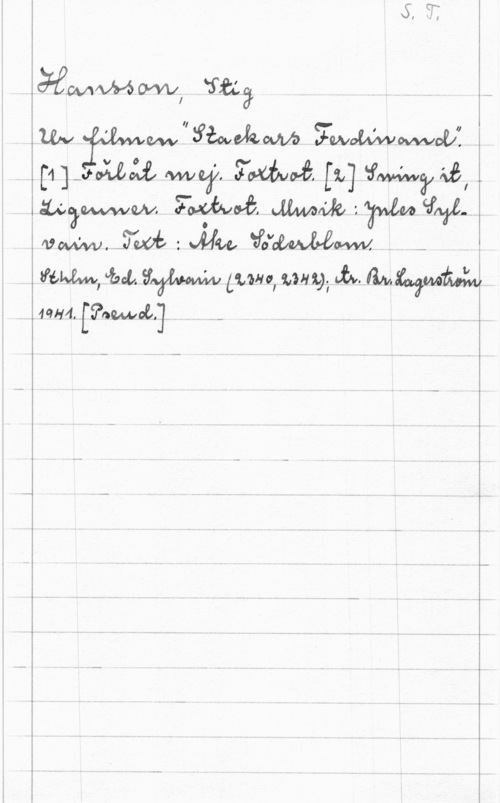 S. T.
Hansson, Stig
Ur filmen "Stackars Ferdinand".
[1] Förlåt mej. Foxtrot. [2] Swing it,
Zigeuner. Foxtrot. Musik : Jules Syl-
vain. Text : Åke Söderblom.
Sthlm, Ed. Sylvain (2340, 2342), tr. Br. Lagerström
1941. [Pseud.]